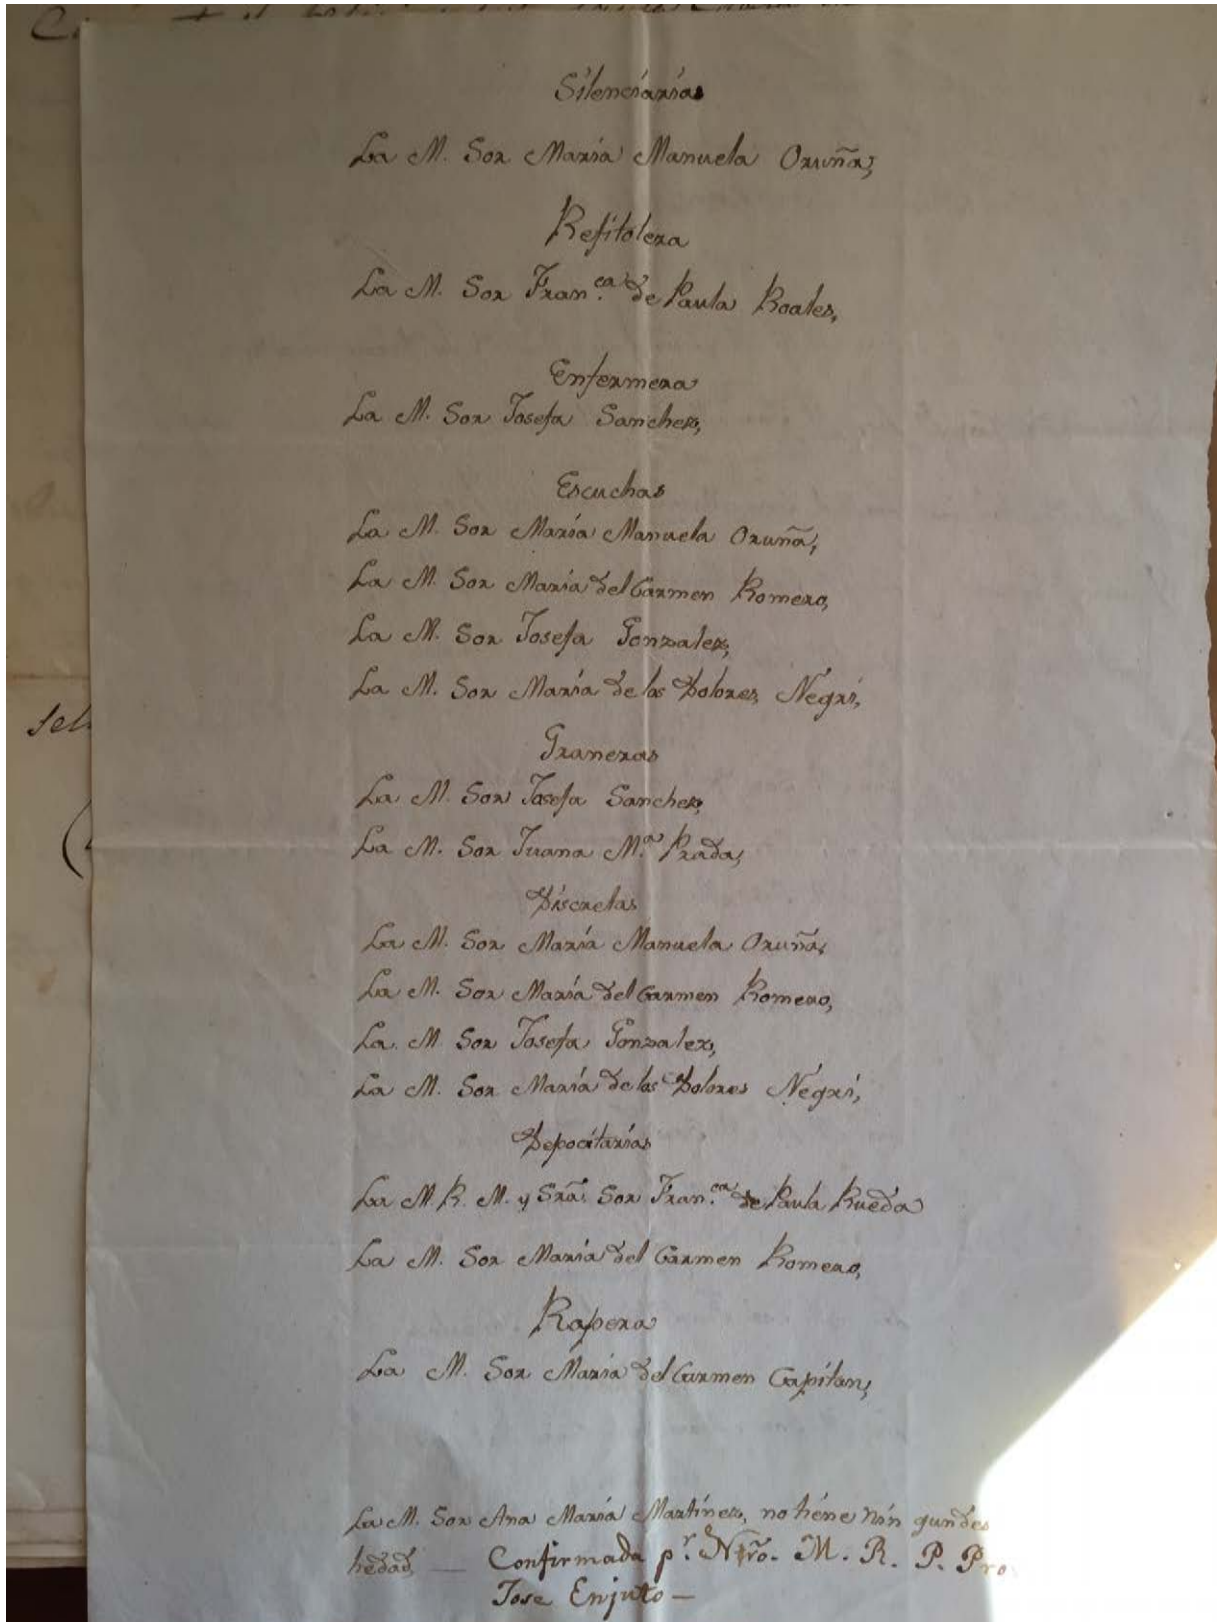 Silenciarias
La M. Sor María Manuela Oruña,
Refitolera
La M. Sor Fran.ca de Paula Roales,
Enfermera
La M. Sor Josefa Sanchez,
Escuchas
La M. Sor María Manuela Oruña,
La M. Sor María del Carmen Romero,
La M. Sor Josefa Gonzalez,
La M. Sor María de los Dolores Negri,
Graneras
La M. Sor Josefa Sanchez,
La M. Sor Juana M.a Prada,
Discretas
La M. Sor María Manuela Oruña,
La M. Sor María del Carmen Romero,
La M. Sor Josefa Gonzalez,
La M. Sor María de los Dolores Negri,
Depocitarias
La M. R. M. y Srã. Sor Fran.ca de Paula Rueda
La M. Sor María del Carmen Romero,
Rapera
La M. Sor María del Carmen Capitan,
La M. Sor Ana María Martínez, no tiene nin gun des
hedad, — Confirmada p.r Ntrõ. M. R. P. Pro
Jose Enjuto —